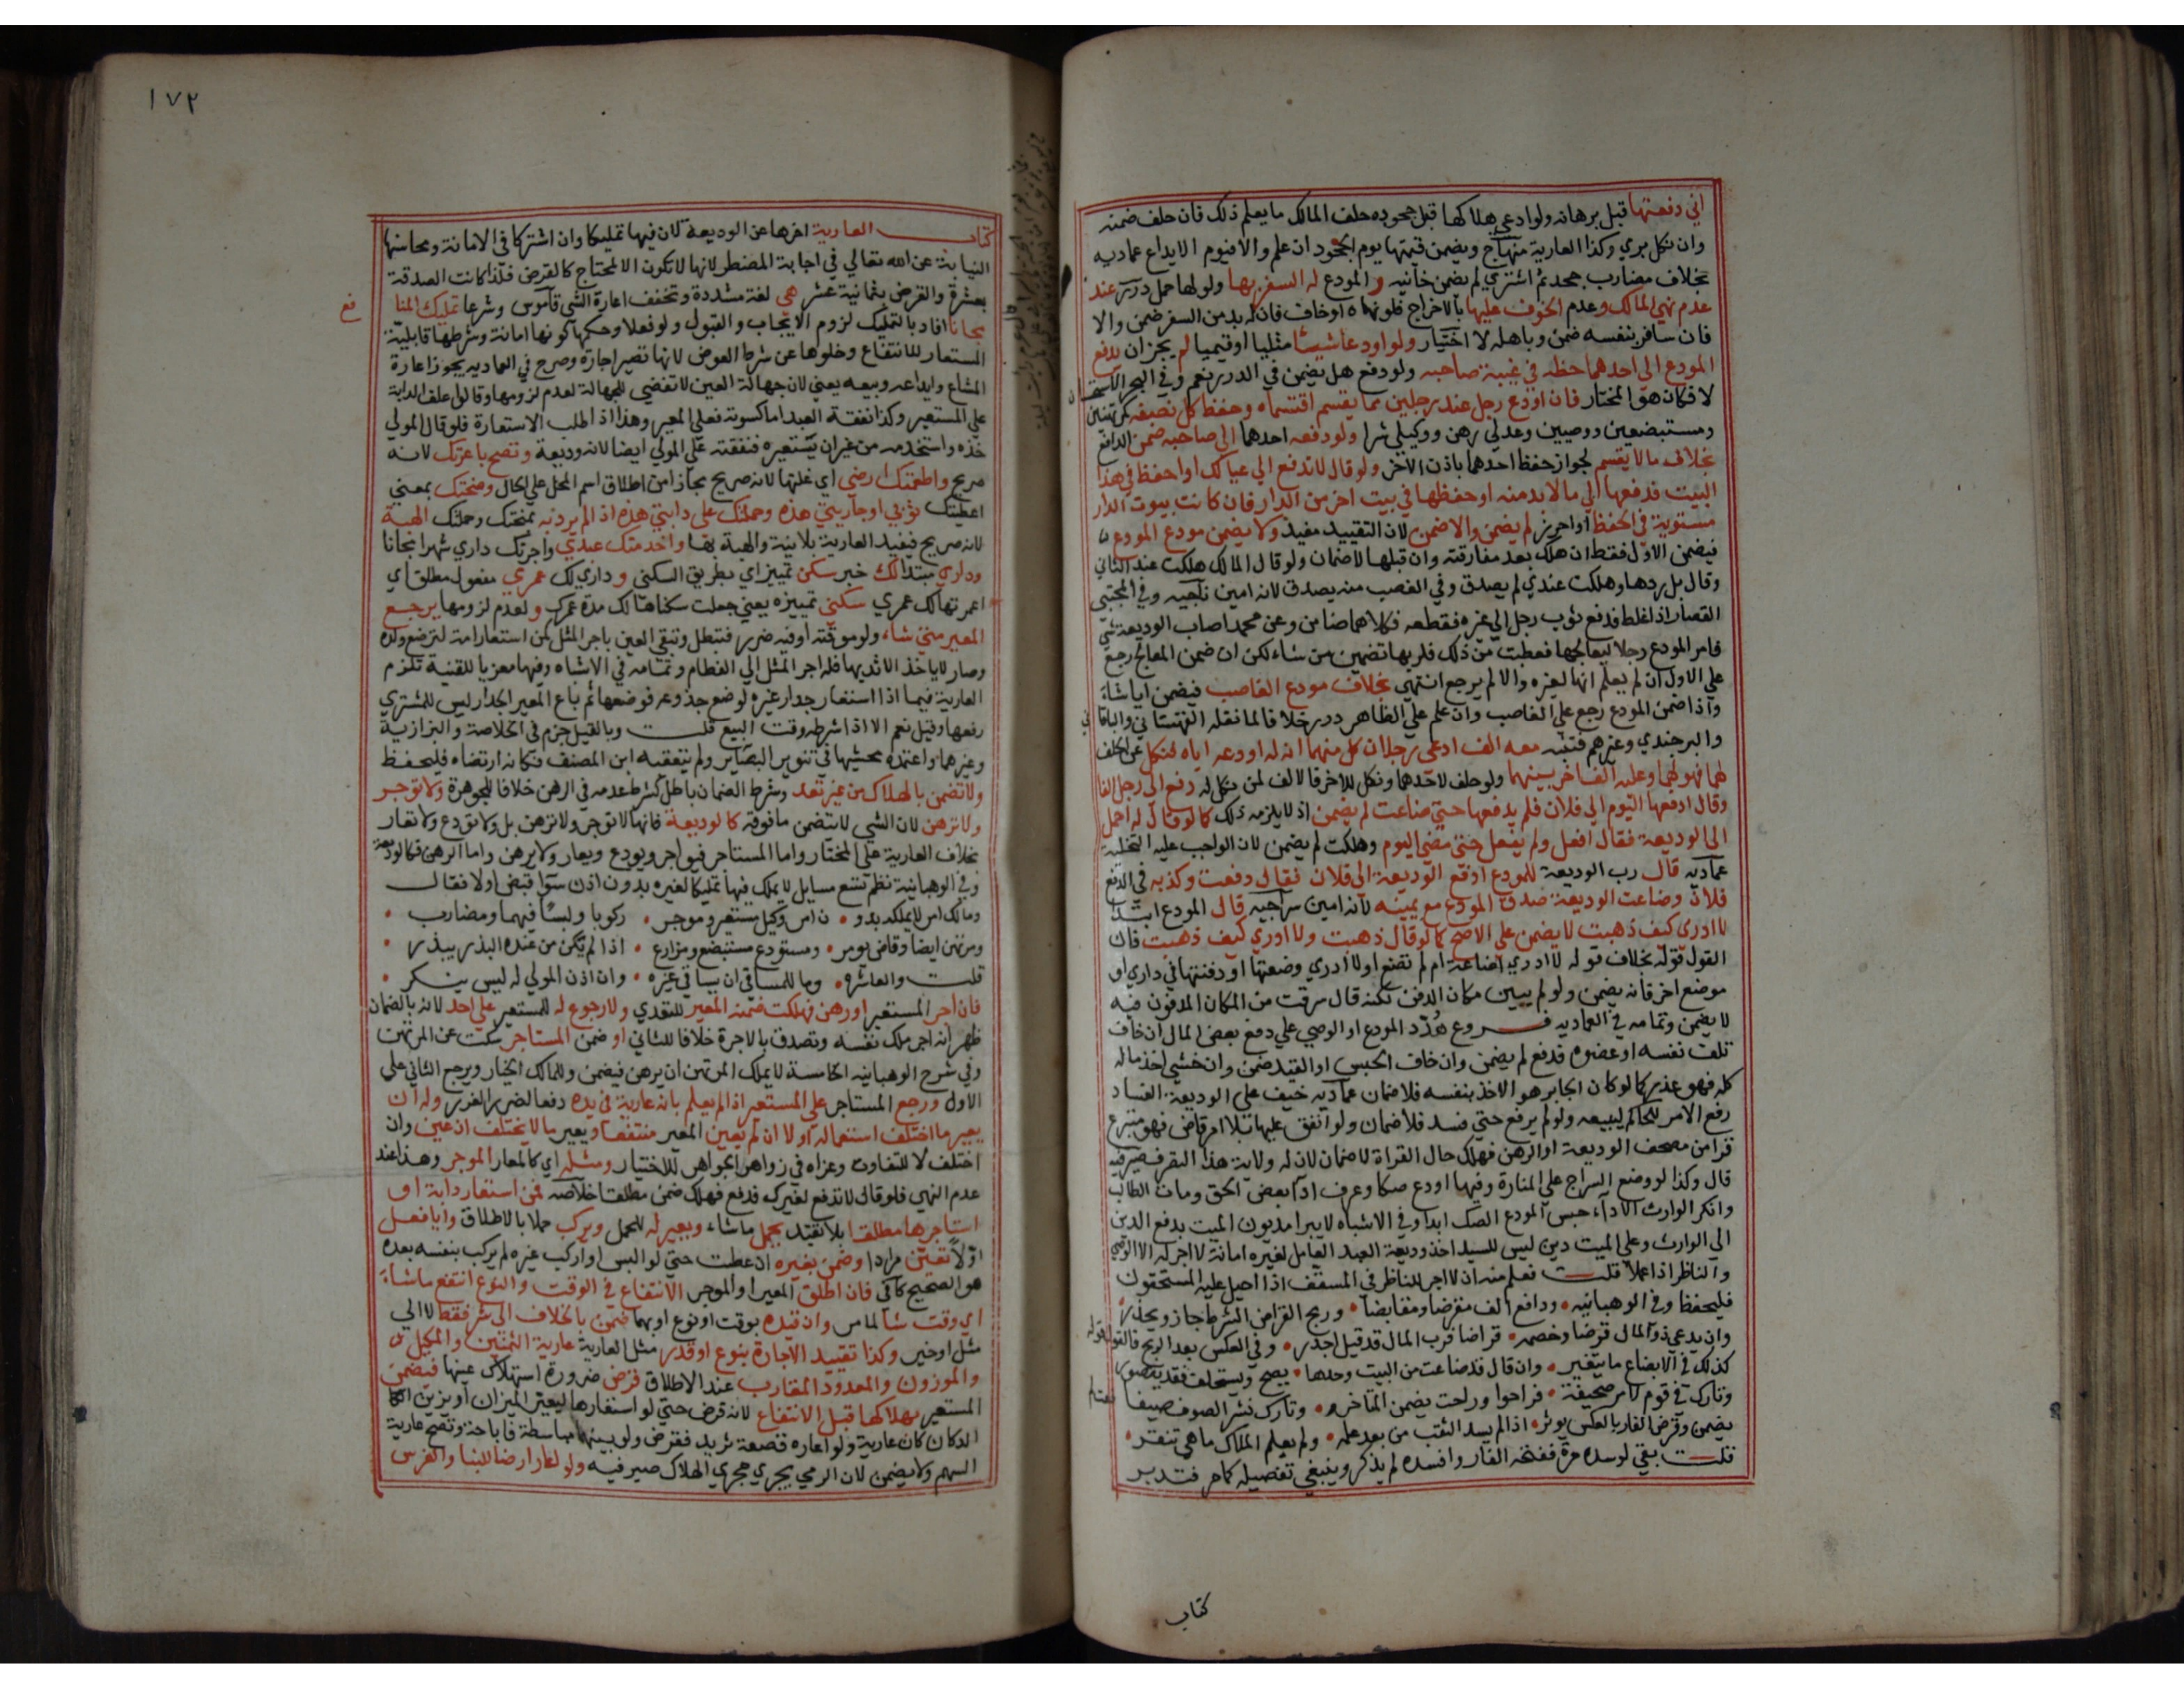 اني دفعتها قبل برهانه ولو ادعي هلاكها قبل جحوده حلف المالك ما يعلم ذلك فان حلف ضمنه
وان نكل بري وكذا العارية منهاج ويضمن قيمتها يوم الجحود ان علم والا فيوم الايداع عمادية
بخلاف مضارب جحد ثم اشتري لم يضمن خانيه و المودع له السفر بها ولو لها حمل درر عند
عدم نهي المالك وعدم الخوف عليها بالاخراج فلو نهاه او خاف فان له بد من السفر ضمن والا
فان سافر بنفسه ضمن وباهله لا اختيار ولو اودعا شيئا مثليا او قيميا لم يجز ان يدفع
المودع الى احدهما حظه في غيبة صاحبه ولو دفع هل يضمن في الدرر نعم وفي البحر الاستحسان
لا فكان هو المختار فان اودع رجل عند رجلين مما يقسم اقتسماه وحفظ كل نصفه كمرتهنين
ومستبضعين ووصيين وعدلي رهن ووكيلي شرا ولو دفعه احدهما الى صاحبه ضمن الدافع
بخلاف ما لا يقسم لجواز حفظ احدهما باذن الاخر ولو قال لا تدفع الي عيالك او احفظ في هذا
البيت فدفعها الي ما لا بد منه او حفظها في بيت اخر من الدار فان كانت بيوت الدار
مستوية في الحفظ او احرز لم يضمن والا ضمن لان التقييد مفيد ولا يضمن مودع المودع
فيضمن الاول فقط ان هلك بعد مفارقته وان قبلها لا ضمان ولو قال المالك هلكت عند الثاني
وقال بل ردها وهلكت عندي لم يصدق وفي الغصب منه يصدق لانه امين سراجيه وفي المجتبي
القصار اذا غلط فدفع ثوب رجل الى غيره فقطعه فكلاهما ضامن وعن محمد اصاب الوديعة شي
فامر المودع رجلا ليعالجها فعطبت من ذلك فلربها تضمين من شاء لكن ان ضمن المعالج رجع
علي الاول ان لم يعلم انها لغيره والا لم يرجع انتهى بخلاف مودع الغاصب فيضمن ايا شاء
واذا ضمن المودع رجع علي الغاصب وان علم علي الظاهر درر خلافا لما نقله القهستاني والباقاني
والبرجندي وغيرهم فتنبه معه الف ادعي رجلان كل منهما انه له اودعه اياه فنكل عن الحلف
لهما فهو لهما وعليه الف اخر بينهما ولو حلف لاحدهما ونكل للاخر فالالف لمن نكل له دفع الى رجل الفا
وقال ادفعها اليوم الي فلان فلم يدفعها حتي ضاعت لم يضمن اذ لا يلزمه ذلك كما لو قال له احمل
الي الوديعة فقال افعل ولم يفعل حتى مضي اليوم وهلكت لم يضمن لان الواجب عليه التخلية
عماديه قال رب الوديعة للمودع ادفع الوديعة الى فلان فقال دفعت وكذبه في الدفع
فلان وضاعت الوديعة صدق المودع مع يمينه لانه امين سراجيه قال المودع ابتدا
لا ادري كيف ذهبت لا يضمن علي الاصح كما لو قال ذهبت ولا ادري كيف ذهبت فان
القول قوله بخلاف قوله لا ادري اضاعت ام لم تضع او لا ادري وضعتها او دفنتها في داري او
موضع اخر فانه يضمن ولو لم يبين مكان الدفن لكنه قال سرقت من المكان المدفون فيه
لا يضمن وتمامه في العماديه فروع هدد المودع او الوصي علي دفع بعض المال ان خاف
تلف نفسه او عضوه فدفع لم يضمن وان خاف الحبس او القيد ضمن وان خشي اخذ ماله
كله فهو عذر كما لو كان الجابر هو الاخذ بنفسه فلا ضمان عماديه خيف علي الوديعة الفساد
رفع الامر للحاكم ليبيعه ولو لم يرفع حتي فسد فلا ضمان ولو انفق عليها بلا امر قاض فهو متبرع
قرا من مصحف الوديعة او الرهن فهلك حال القراة لا ضمان لان له ولاية هذا التصرف صيرفيه
قال وكذا لو وضع السراج علي المنارة وفيها اودع صكا وعرف اداء بعض الحق ومات الطالب
وانكر الوارث الاداء حبس المودع الصك ابدا وفي الاشباه لا يبرا مديون الميت بدفع الدين
الي الوارث وعلي الميت دين ليس للسيد اخذ وديعة العبد العامل لغيره امانة لا اجر له الا الوصي
والناظر اذا عملا قلت فعلم منه ان لا اجر للناظر في المسقف اذا احيل عليه المستحقون
فليحفظ وفي الوهبانيه • ودافع الف مقرضا ومقارضا • وربح القراض الشرط جاز ويحذر
وان يدعي ذو المال قرضا وخصمه • قراضا فرب المال قد قيل اجدر • وفي العكس بعد الربح فالقول قوله
كذلك في الابضاع ما يتغير • وان قال قد ضاعت من البيت وحدها • يصح ويستحلف فقد يتصور
وتارك في قوم لامر صحيفة • فراحوا وراحت يضمن المتاخر • وتارك نشر الصوف صيفا
يضمن وقرض الفار بالعكس يوثر • اذا لم يسد الثقب من بعد علمه • ولم يعلم الملاك ما هي تنقر
قلت بقي لو سده مرة ففتحه الفار وافسده لم يذكر وينبغي تفصيله كما مر فتدبر
كتاب
١٧٢
كتاب العارية اخرها عن الوديعة لان فيها تمليكا وان اشتركا في الامانة ومحاسنها
النيابة عن الله تعالي في اجابة المضطر لانها لا تكون الا لمحتاج كالقرض فلذا كانت الصدقة
بعشرة والقرض بثمانية عشر هي لغة مشددة وتخفف اعارة الشي قاموس وشرعا تمليك المنافع
مجانا افاد بالتمليك لزوم الايجاب والقبول ولو فعلا وحكمها كونها امانة وشرطها قابلية
المستعار للانتفاع وخلوها عن شرط العوض لانها تصير اجارة وصرح في العماديه بجواز اعارة
المشاع وايداعه وبيعه يعني لان جهالة العين لا تفضي للجهالة لعدم لزومها وقالوا علف الدابة
علي المستعير وكذا نفقة العبد اما كسوته فعلي المعير وهذا اذا طلب الاستعارة فلو قال المولي
خذه واستخدمه من غير ان يستعيره فنفقته علي المولي ايضا لانه وديعة وتصح باعرتك لانه
صريح واطعمتك ارضي اي غلتها لانه صريح مجازا من اطلاق اسم المحل علي الحال ومنحتك بمعني
اعطيتك ثوبي او جاريتي هذه وحملتك علي دابتي هذه اذا لم يرد به بمنحتك وحملتك الهبة
لانه صريح فيفيد العارية بلا نية والهبة بها واخدمتك عبدي واجرتك داري شهرا مجانا
وداري مبتدا لك خبر سكني تمييز اي بطريق السكني و داري لك عمري مفعول مطلق اي
اعمرتها لك عمري سكني تمييزه يعني جعلت سكناها لك مدة عمرك و لعدم لزومها يرجع
المعير متي شاء ولو موقتة او فيه ضرر فتبطل وتبقي العين باجر المثل كمن استعار امة لترضع ولده
وصار لا ياخذ الا ثديها فله اجر المثل الي الفطام وتمامه في الاشباه وفيها معزيا للقنية تلزم
العارية فيما اذا استعار جدار غيره لوضع جذوعه فوضعها ثم باع المعير الجدار ليس للمشتري
رفعها وقيل نعم الا اذا شرطه وقت البيع قلت وبالقيل جزم في الخلاصة والبزازية
وغيرهما واعتمده محشيها في تنوير البصاير ولم يتعقبه ابن المصنف فكانه ارتضاه فليحفظ
ولا تضمن بالهلاك من غير تعد وشرط الضمان باطل كشرط عدمه في الرهن خلافا للجوهرة ولا توجر
ولا ترهن لان الشي لا يتضمن ما فوقه كالوديعة فانها لا توجر ولا ترهن بل ولا تودع ولا تعار
بخلاف العارية علي المختار واما المستاجر فيواجر ويودع ويعار ولا يرهن واما الرهن فكالوديعة
وفي الوهبانية نظم تسع مسايل لا يملك فيها تمليكا لغيره بدون اذن سوا قبض اولا فقال
ومالك امر لا يملكه بدو • ن امر وكيل مستعير وموجر • ركوبا ولبسا فيهما ومضارب •
ومرتهن ايضا وقاض يومر • ومستودع مستبضع ومزارع • اذا لم يكن من عنده البذر يبذر •
قلت والعاشره • وما للمساقي ان يساقي غيره • وان اذن المولي له ليس ينكر •
فان اجر المستعير او رهن فهلكت ضمنه المعير للتعدي ولا رجوع له للمستعير علي احد لانه بالضمان
ظهر انه اجر ملك نفسه وتصدق بالاجرة خلافا للثاني او ضمن المستاجر سكت عن المرتهن
وفي شرح الوهبانيه الخامسة لا يملك المرتهن ان يرهن فيضمن وللمالك الخيار ويرجع الثاني علي
الاول ورجع المستاجر علي المستعير اذا لم يعلم بانه عارية في يده دفعا لضرر الغرر وله ان
يعير ما اختلف استعماله اولا ان لم يعين المعير منتفعا ويعير ما لا يختلف ان عين وان
اختلف لا للتفاوت وعزاه في زواهر الجواهر للاختيار ومثله اي كالمعار الموجر وهذا عند
عدم النهي فلو قال لا تدفع لغيرك فدفع فهلك ضمن مطلقا خلاصه فمن استعار دابة او
استاجرها مطلقا بلا تقييد يحمل ما شاء ويعير له للحمل ويركب عملا بالاطلاق وايا فعل
اولا تعين مرادا وضمن بغيره ان عطبت حتي لو البس او اركب غيره لم يركب بنفسه بعده
هو الصحيح كافي فان اطلق المعير او الموجر الانتفاع في الوقت والنوع انتفع ما شاء
اي وقت شا لما مر وان قيده بوقت او نوع او بهما ضمن بالخلاف الى شر فقط لا الي
مثل او خير وكذا تقييد الاجارة بنوع او قدر مثل العارية عارية الثمنين والمكيل
والموزون والمعدود المتقارب عند الاطلاق قرض ضرورة استهلاك عينها فيضمن
المستعير بهلاكها قبل الانتفاع لانه قرض حتي لو استعارها ليعير الميزان او يزين
الدكان كان عارية ولو اعاره قصعة ثريد فقرض ولو بينهما مباسطة فاباحة وتصح عارية
السهم ولا يضمن لان الرمي يجري مجري الهلاك صيرفيه ولو اعار ارضا للبنا والغرس